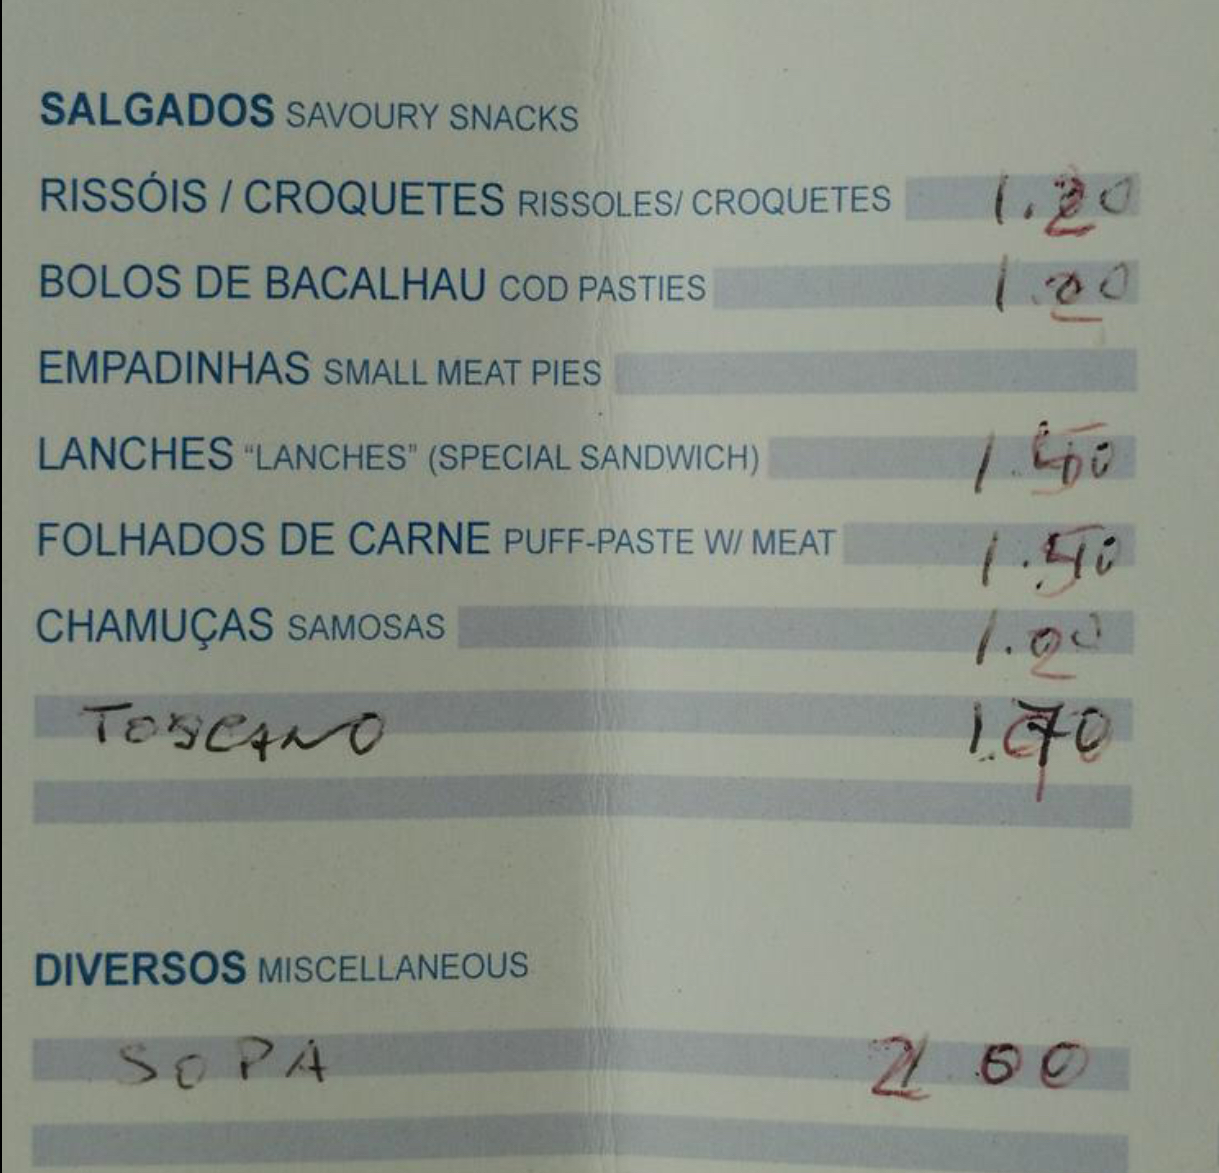 SALGADOS SAVOURY SNACKS
RISSÓIS / CROQUETES RISSOLES/ CROQUETES 1.20
BOLOS DE BACALHAU COD PASTIES 1.20
EMPADINHAS SMALL MEAT PIES
LANCHES "LANCHES" (SPECIAL SANDWICH) 1.50
FOLHADOS DE CARNE PUFF-PASTE W/ MEAT 1.50
CHAMUÇAS SAMOSAS 1.20
TOSCANO
DIVERSOS MISCELLANEOUS
SOPA